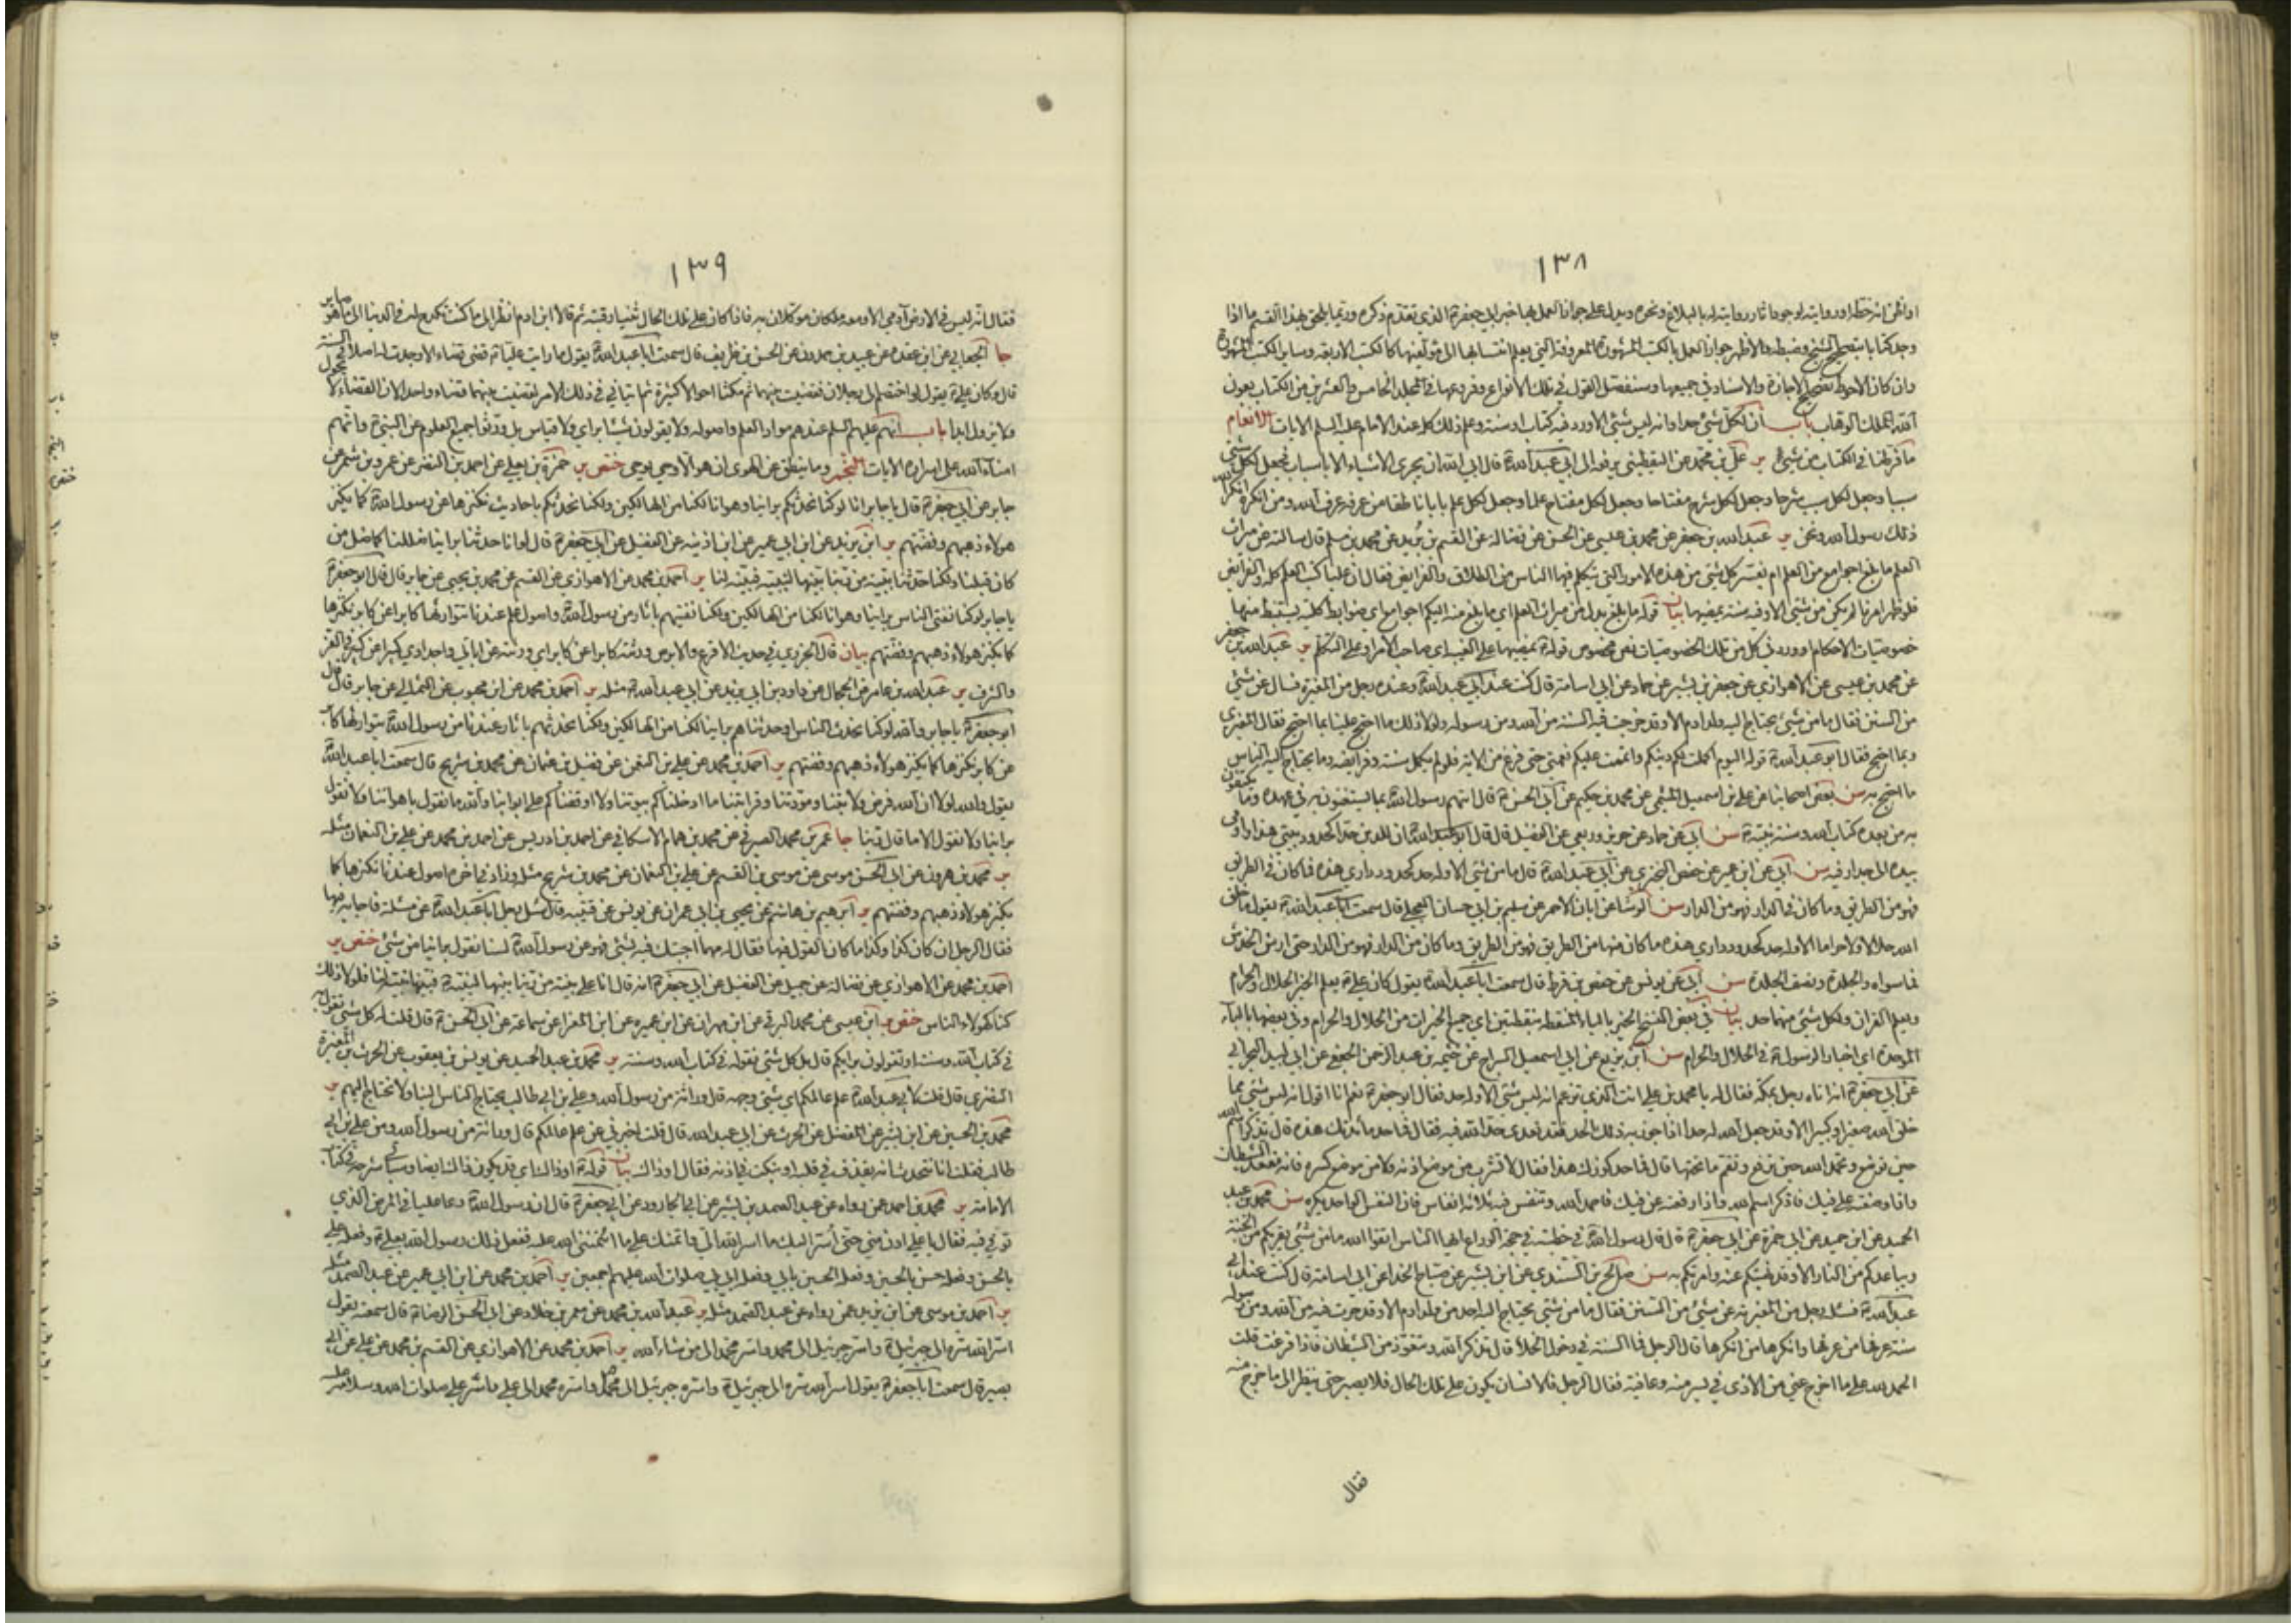 ١٣٨
او ظن انه خطه او روايته لوجود اثار روايته له بالبلاغ ونحوه ويدل على جواز العمل بها خبر ابي جعفرة الذي تقدم ذكره وربما يلحق بهذا القسم ما اذا
وجد كتابا بتصحيح الشيخ وضبطه والاظهر جواز العمل بالكتب المشهورة المعروفة التي يعلم انتسابها الى مؤلفيها كالكتب الاربعة وساير الكتب المشهورة
وان كان الاحوط تصحيح الاجازة والاسناد في جميعها وسنفصل القول في تلك الانواع وفروعها في المجلد الخامس والعشرين من الكتاب بعون
الله الملك الوهاب باب ان لكل شئ حدا وانه ليس شئ الا ورد فيه كتاب او سنة وعلم ذلك كله عند الامام عليه السلم الايات الانعام
ما فرطنا في الكتاب من شئ ير علي بن محمد عن اليقطيني يرفعه الى ابي عبد الله قال ابي الله ان يجري الاشياء الا بالاسباب فجعل لكل شئ
سببا وجعل لكل سبب شرحا وجعل لكل شرح مفتاحا وجعل لكل مفتاح علما وجعل لكل علم بابا ناطقا من عرفه عرف الله ومن انكره انكر الله
ذلك رسول الله ونحن ير عبد الله بن جعفر عن محمد بن عيسى عن الحسن عن فضالة عن القسم بن بريد عن محمد بن مسلم قال سالته عن ميراث
العلم ما بلغ اجوامع من العلم ام يفسر كل شئ من هذه الامور التي يتكلم فيها الناس من الطلاق والفرايض فقال ان عليا كتب العلم كله والفرايض
فلو ظهر امرنا لم يكن من شئ الا وفيه سنة يمضيها بيان قوله ما بلغ بدل من ميراث العلم اي ما بلغ منه اليكم اجوامع اي ضوابط كلية يستنبط منها
خصوصيات الاحكام او ورد في كل من تلك الخصوصيات نص مخصوص قوله يمضيها على الغيبة اي صاحب الامر او على التكلم ير عبد الله بن جعفر
عن محمد بن عيسى عن الاهوازي عن جعفر بن بشير عن حماد عن ابي اسامة قال كنت عند ابي عبد الله وعنده رجل من المغيرية فساله عن شئ
من السنن فقال ما من شئ يحتاج اليه ولد ادم الا وقد خرجت فيه السنة من الله ومن رسوله ولولا ذلك ما احتج علينا بما احتج فقال المغيري
وبما احتج فقال ابو عبد الله قوله اليوم اكملت لكم دينكم واتممت عليكم نعمتي حتى فرغ من الاية فلو لم يكمل سنته وفرايضه وما يحتاج اليه الناس
ما احتج به سن بعض اصحابنا عن علي بن اسمعيل الميثمي عن محمد بن حكيم عن ابي الحسن قال اتهم رسول الله بما يستغنون به في عهده وما يكتفون
به من بعده كتاب الله وسنة نبيه سن ابي عن حماد عن حريز وربعي عن الفضيل قال قال ابو عبد الله ان للدين حدا كحدود بيتي هذا واومى
بيده الى جدار فيه سن ابي عن ابن عمير عن حفص البختري عن ابي عبد الله قال ما من شئ الا وله حد كحدود داري هذه فما كان في الطريق
فهو من الطريق وما كان في الدار فهو من الدار سن الوشا عن ابان الاحمر عن سليم بن ابي حسان العجلي قال سمعت ابا عبد الله يقول ما خلق
الله حلالا ولا حراما الا وله حد كحدود داري هذه ما كان منها من الطريق فهو من الطريق وما كان من الدار فهو من الدار حتى ارش الخدش
فما سواه والجلدة ونصف الجلدة سن ابي عن يونس عن حفص بن قرط قال سمعت ابا عبد الله يقول كان علي يعلم الخبر الحلال والحرام
ويعلم القران ولكل شئ منهما حد بيان في بعض النسخ الخير بالياء المنقطة بنقطتين اي جميع الخيرات من الحلال والحرام وفي بعضها بالباء
الموحدة اى اخبار الرسول في الحلال والحرام سن ابن بزيع عن ابي اسمعيل السراج عن خيثمة بن عبد الرحمن الجعفي عن ابي لبيد البحراني
عن ابي جعفر انه اتاه رجل بمكة فقال له يا محمد بن علي انت الذي تزعم انه ليس شئ الا وله حد فقال ابو جعفر نعم انا اقول انه ليس شئ مما
خلق الله صغيرا وكبيرا الا وقد جعل الله له حدا اذا جوز به ذلك الحد فقد تعدى حد الله فيه فقال فما حد مائدتك هذه قال تذكر اسم الله
حين توضع وتحمد الله حين ترفع وتقم ما تحتها قال فما حد كوزك هذا فقال لا تشرب من موضع اذنه ولا من موضع كسره فانه مقعد الشيطان
واذا وضعته على فيك فاذكر اسم الله واذا رفعته عن فيك فاحمد الله وتنفس فيه ثلاثة انفاس فان النفس الواحد يكره سن محمد بن عبد
الحميد عن ابن حميد عن ابي حمزة عن ابي جعفر قال قال رسول الله في خطبته في حجة الوداع ايها الناس اتقوا الله ما من شئ يقربكم من الجنة
ويباعدكم من النار الا وقد نهيتكم عنه وامرتكم به سن صالح بن السندي عن ابن بشير عن صباح الحذا عن ابي اسامة قال كنت عند ابي
عبد الله فسئله رجل من المغيرية عن شئ من السنن فقال ما من شئ يحتاج اليه احد من ولد ادم الا وقد جرت فيه من الله ومن رسوله
سنة عرفها من عرفها وانكرها من انكرها قال الرجل فما السنة في دخول الخلاء قال تذكر الله وتتعوذ من الشيطان فاذا فرغت قلت
الحمد لله على ما اخرج عني من الاذى في يسر منه وعافية فقال الرجل فالانسان يكون على تلك الحال فلا يصبر حتى ينظر الى ما خرج منه
فقال
١٣٩
فقال انه ليس في الارض آدمي الا ومعه ملكان موكلان به فاذا كان على تلك الحال ثنيا رقبته ثم قالا ابن ادم انظر الى ما كنت تكدح له في الدنيا الى ما هو صاير
جا الجعابي عن ابن عقدة عن عبيد بن حمدون عن الحسن بن ظريف قال سمعت ابا عبد الله يقول ما رايت عليا قضى قضاء الا وجدت له اصلا في السنة
قال وكان علي يقول لو اختصم الى رجلان فقضيت بينهما ثم مكثا احوالا كثيرة ثم اتياني في ذلك الامر لقضيت بينهما قضاء واحدا لان القضاء لا يحول
ولا يزول ابدا باب انهم عليهم السلم عندهم مواد العلم واصوله ولا يقولون شيئا براي ولا قياس بل ورثوا جميع العلوم عن النبي وانهم
امناء الله على اسراره الايات النجم وما ينطق عن الهوى ان هو الا وحي يوحى ختص ير حمزة بن يعلى عن احمد بن النضر عن عمرو بن شمر عن
جابر عن ابي جعفر قال يا جابر انا لو كنا نحدثكم براينا وهوانا لكنا من الهالكين ولكنا نحدثكم باحاديث نكنزها عن رسول الله كما يكنز
هولاء ذهبهم وفضتهم ير ابن يزيد عن ابن ابي عمير عن ابن اذينة عن الفضيل عن ابي جعفر قال لو انا حدثنا براينا ضللنا كما ضل من
كان قبلنا ولكنا حدثنا ببينة من ربنا بينها لنبيه فبينه لنا ير احمد بن محمد عن الاهوازي عن القسم عن محمد بن يحيى عن جابر قال قال ابو جعفر
يا جابر لو كنا نفتي الناس براينا وهوانا لكنا من الهالكين ولكنا نفتيهم باثار من رسول الله واصول علم عندنا نتوارثها كابرا عن كابر نكنزها
كما يكنز هولاء ذهبهم وفضتهم بيان قال الجزري في حديث الاقرع والابرص ورثته كابرا عن كابر اي ورثته عن ابائي واجدادي كبيرا عن كبير في العز
والشرف ير عبد الله بن عامر عن الحجال عن داود بن ابي يزيد عن ابي عبد الله مثله ير احمد بن محمد عن ابن محبوب عن الثمالي عن جابر قال قال
ابو جعفر يا جابر والله لو كنا نحدث الناس او حدثناهم براينا لكنا من الهالكين ولكنا نحدثهم باثار عندنا من رسول الله يتوارثها كابر
عن كابر نكنزها كما يكنز هولاء ذهبهم وفضتهم ير احمد بن محمد عن علي بن النعمن عن فضيل بن عثمان عن محمد بن شريح قال سمعت ابا عبد الله
يقول والله لولا ان الله فرض ولايتنا ومودتنا وقرابتنا ما ادخلناكم بيوتنا ولا اوقفناكم على ابوابنا والله ما نقول باهوائنا ولا نقول
براينا ولا نقول الا ما قال ربنا جا عمر بن محمد الصيرفي عن محمد بن همام الاسكافي عن احمد بن ادريس عن احمد بن محمد عن علي بن النعمان مثله
ير محمد بن هرون عن ابي الحسن موسى عن موسى بن القسم عن علي بن النعمان عن محمد بن شريح مثله وزاد في اخره اصول عندنا نكنزها كما
يكنز هولاء ذهبهم وفضتهم ير ابرهيم بن هاشم عن يحيى بن ابي عمران عن يونس عن قتيبة قال سئل رجل ابا عبد الله عن مسئلة فاجابه فيها
فقال الرجل ان كان كذا وكذا ما كان القول فيها فقال له مهما اجبتك فيه بشئ فهو عن رسول الله لسنا نقول براينا من شئ ختص ير
احمد بن محمد عن الاهوازي عن فضالة عن جميل عن الفضيل عن ابي جعفر انه قال انا على بينة من ربنا بينها لنبيه فبينها نبيه لنا فلولا ذلك
كنا كهولاء الناس ختص ير ابن عيسى عن محمد البرقي عن ابن مهران عن ابن عميرة عن ابي المغرا عن سماعة عن ابي الحسن قال قلت له كل شئ تقول به
في كتاب الله وسنته او تقولون برايكم قال بل كل شئ نقوله في كتاب الله وسنته ير محمد بن عبد الحميد عن يونس بن يعقوب عن الحرث بن المغيرة
النضري قال قلت لابي عبد الله علم عالمكم اي شئ وجهه قال وراثة من رسول الله وعلي بن ابي طالب يحتاج الناس الينا ولا نحتاج اليهم ير
محمد بن الحسين عن ابن بشير عن المفضل عن الحرث عن ابي عبد الله قال قلت اخبرني عن علم عالمكم قال وراثة من رسول الله ومن علي بن ابي
طالب فقلت انا نتحدث انه يقذف في قلبه او ينكت في اذنه فقال او ذاك بيان قوله او ذاك اي قد يكون ذاك ايضا وسيأتي شرحه في كتاب
الامامة ير محمد بن احمد عمن رواه عن عبد الصمد بن بشير عن ابي الجارود عن ابي جعفر قال ان رسول الله دعا عليا في المرض الذي
توفي فيه فقال يا علي ادن مني حتى أسر اليك ما اسر الله الي وائتمنك على ما ائتمنني الله عليه ففعل ذلك رسول الله بعلي وفعله علي
بالحسن وفعله حسن بالحسين وفعله الحسين بابي وفعله ابي بي صلوات الله عليهم اجمعين ير احمد بن محمد عن ابن ابي عمير عن عبد الصمد مثله
ير احمد بن موسى عن ابن يزيد عمن رواه عن عبد الصمد مثله ير عبد الله بن محمد عن معمر بن خلاد عن ابي الحسن الرضا قال سمعته يقول
اسر الله سره الى جبرئيل واسره جبرئيل الى محمد واسره محمد الى من شاء الله ير احمد بن محمد عن الاهوازي عن القسم بن محمد عن علي عن ابي
بصير قال سمعت ابا جعفر يقول اسر الله سره الى جبرئيل واسره جبرئيل الى محمد واسره محمد الى علي واسره علي صلوات الله وسلامه عليه